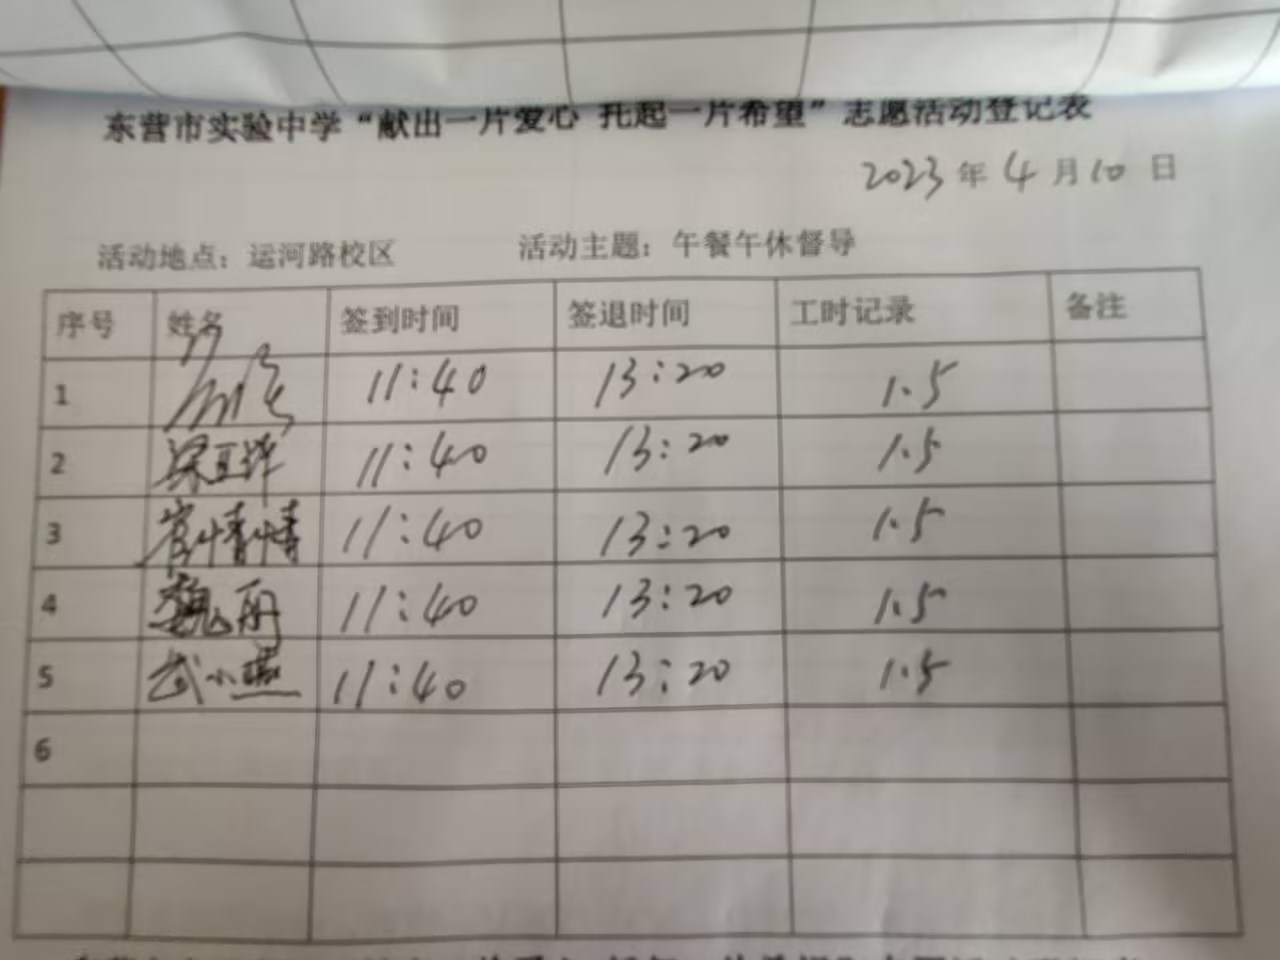 东营市实验中学“献出一片爱心 托起一片希望”志愿活动登记表
2023年4月10日
活动地点：运河路校区 活动主题：午餐午休督导
序号 姓名 签到时间 签退时间 工时记录 备注
1 11:40 13:20 1.5
2 梁亚洋 11:40 13:20 1.5
3 常情情 11:40 13:20 1.5
4 魏丽 11:40 13:20 1.5
5 武小燕 11:40 13:20 1.5
6